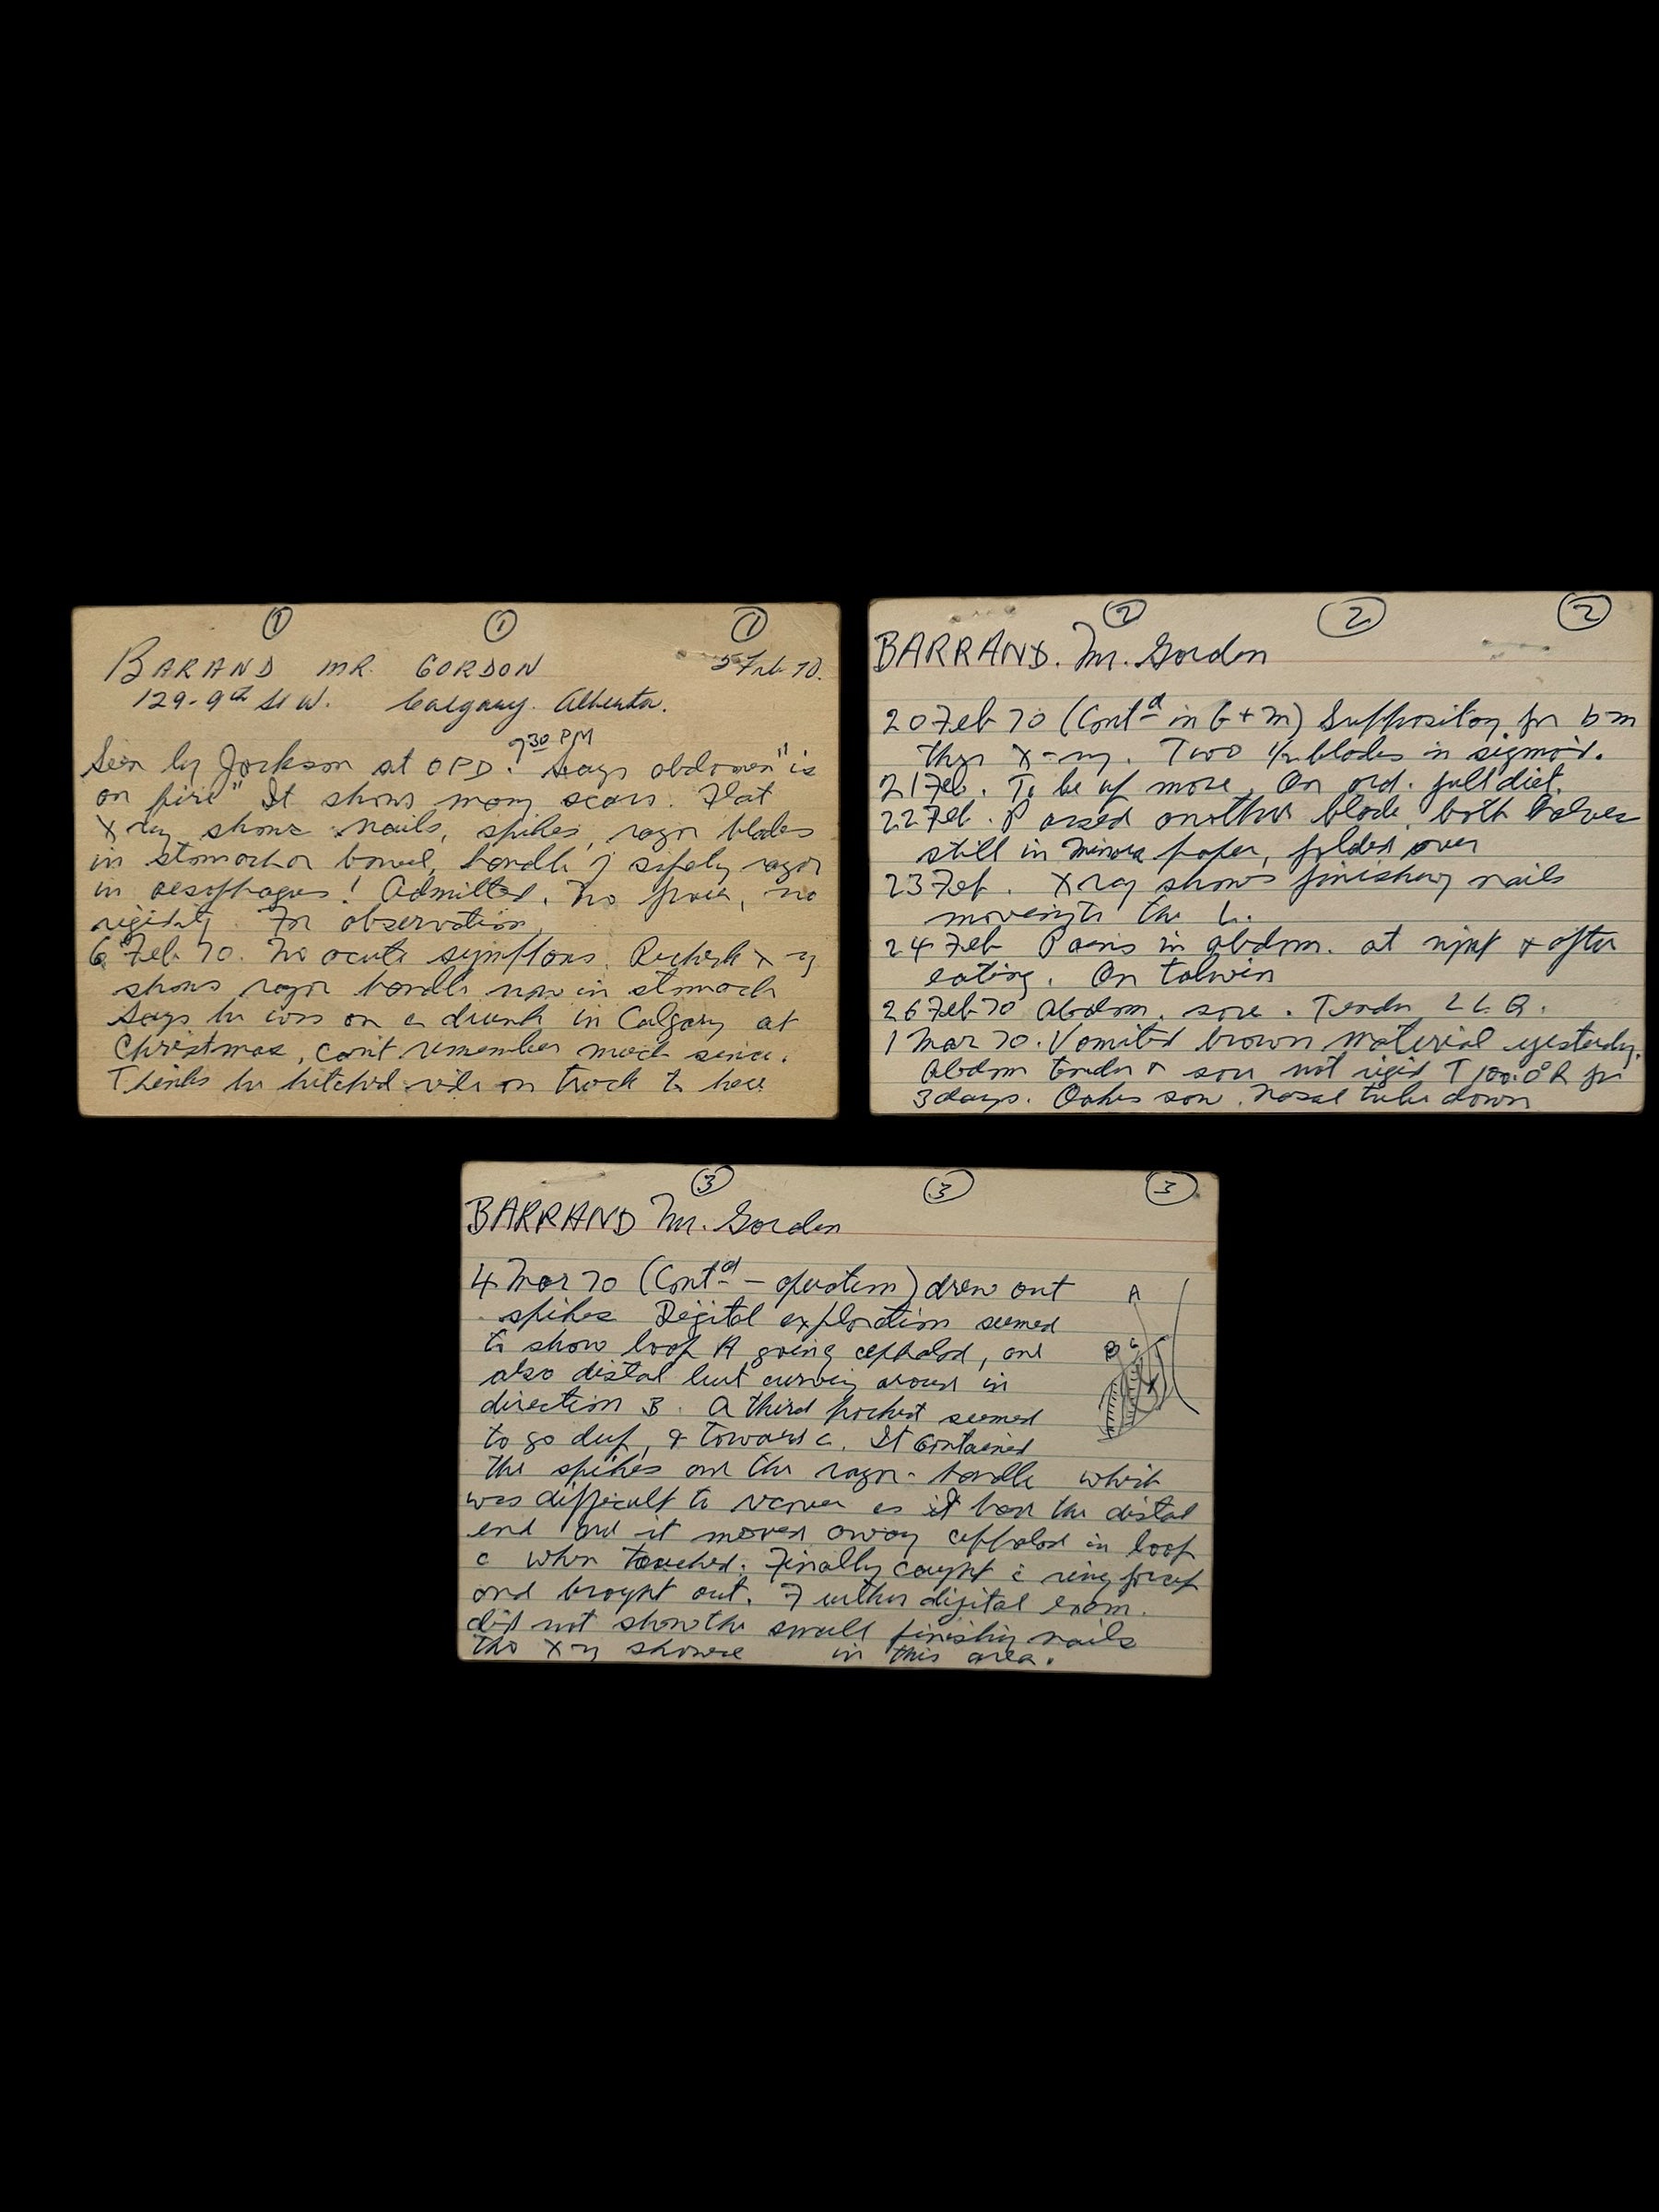 ① ① ①
BARAND MR. GORDON 5 Feb 70.
129-9th St W. Calgary. Alberta.
930 PM
Seen by Jackson at OPD. Says abdomen "is
on fire" It shows many scars. Flat
X ray shows nails, spikes, razor blades
in stomach or bowel, handle of safety razor
in oesophagus! Admitted. No pain, no
rigidity. For observation.
6 Feb 70. No acute symptoms. Recheck x-ray
shows razor handle now in stomach
Says he was on a drunk in Calgary at
Christmas, can't remember much since.
Thinks he hitched ride on truck to here
② ② ②
BARRAND. Mr. Gordon
20 Feb 70 (Contd in b + m) Suppository for bm
then X-ray. Two 1/2 blades in sigmoid.
21 Feb. To be up more. On ord. full diet.
22 Feb. Passed another blade, both halves
still in paper, folded over
23 Feb. X ray shows finishing nails
moving to the L.
24 Feb Pains in abdom. at night & after
eating. On talwin
26 Feb 70 Abdom. sore. Tender L L Q.
1 Mar 70. Vomited brown material yesterday.
Abdom tender & sore not rigid T 100.0° R for
3 days. Oakes saw. Nasal tube down
③ ③ ③
BARRAND Mr. Gordon
4 Mar 70 (Contd - operation) drew out
spikes Digital exploration seemed
to show loop A going cephalad, and
also distal but curving around in
direction B. A third pocket seemed
to go deep, & towards c. It contained
the spikes and the razor-handle which
was difficult to recover as it was the distal
end and it moved away cephalad in loop
c when touched. Finally caught c ring forcep
and brought out. Further digital exam.
did not show the small finishing nails
tho X-ray showed in this area.
A
B C